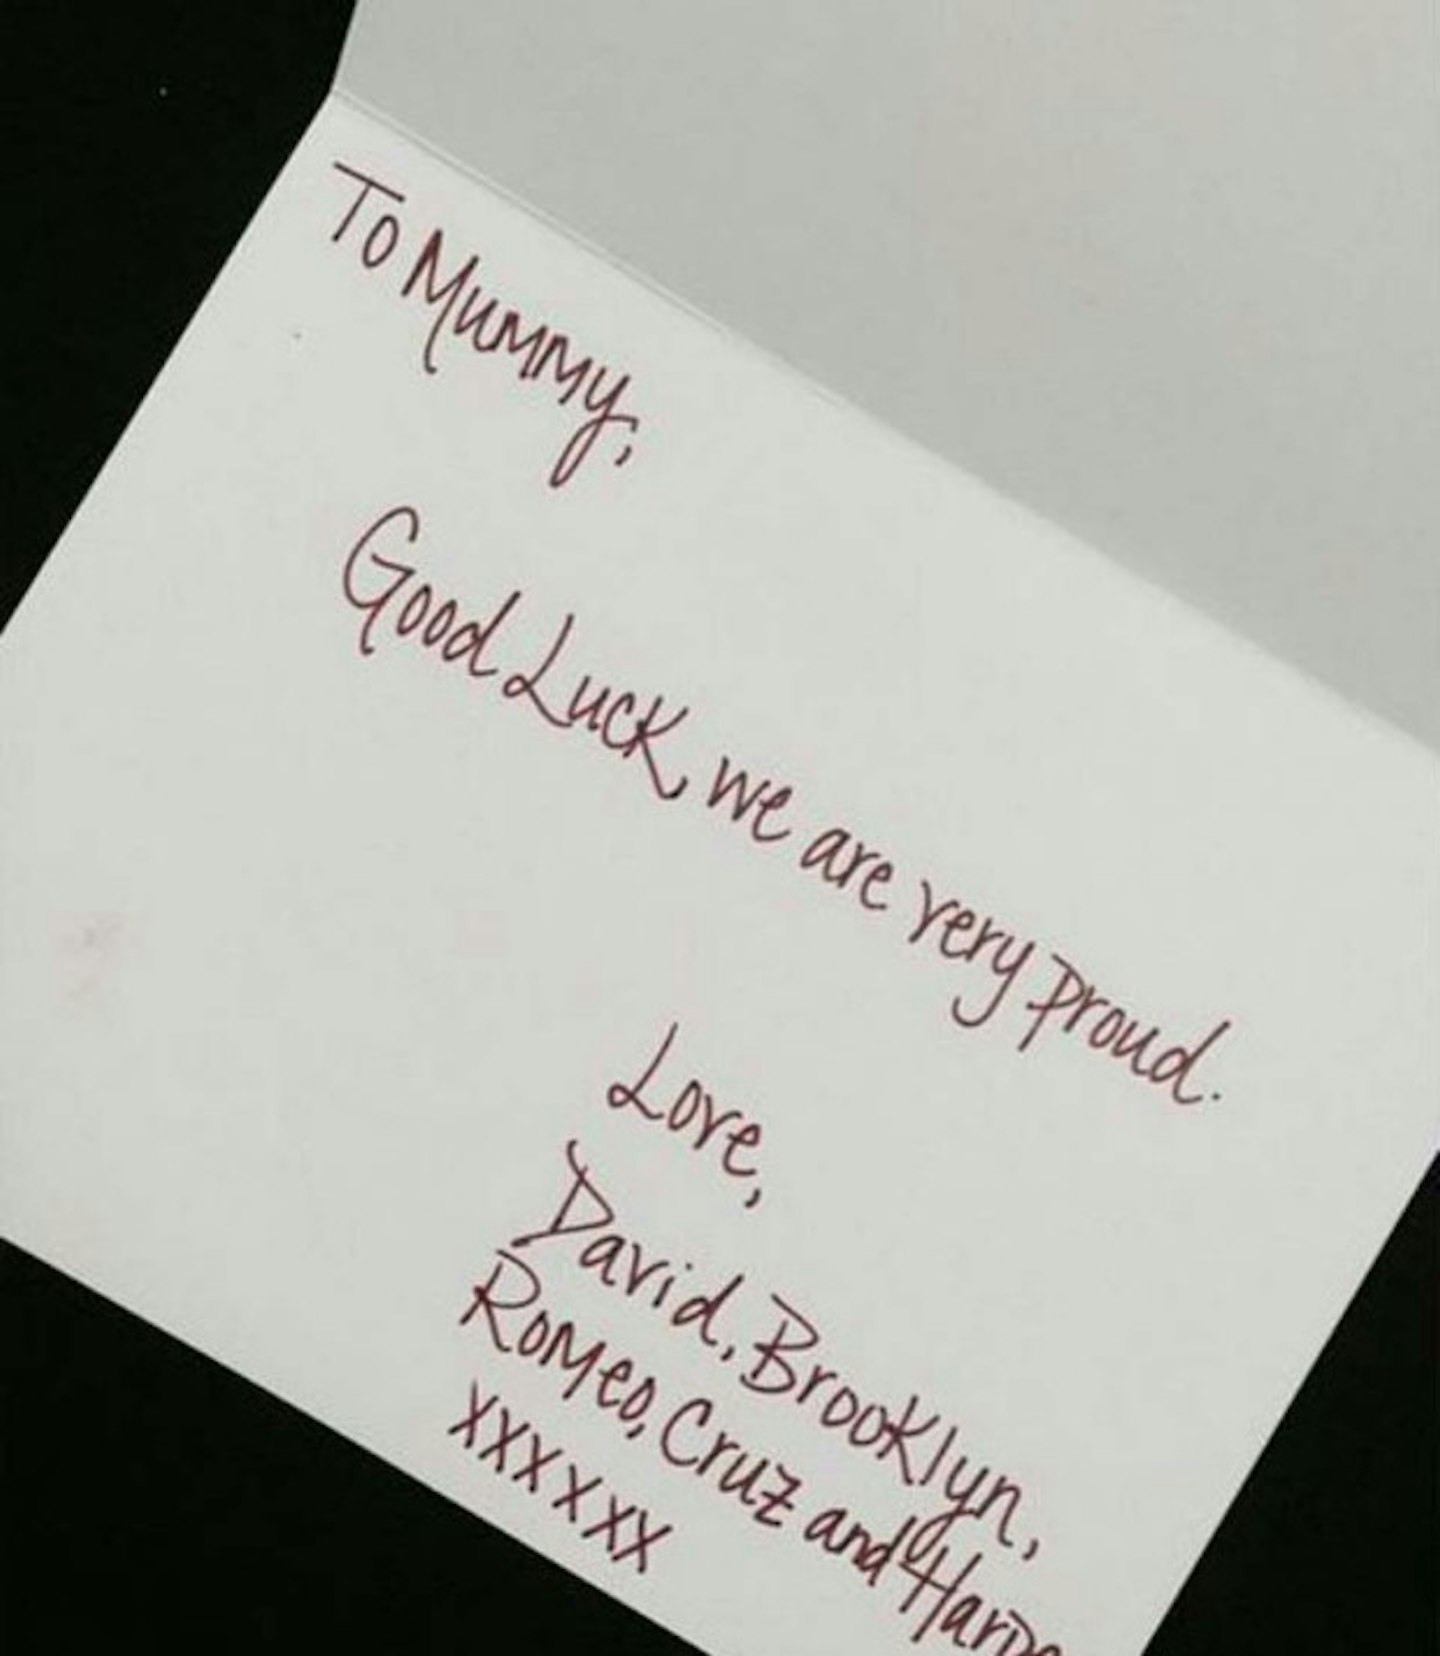 To Mummy,
Good Luck, we are very proud.
Love,
David, Brooklyn,
Romeo, Cruz and
xxxxxx